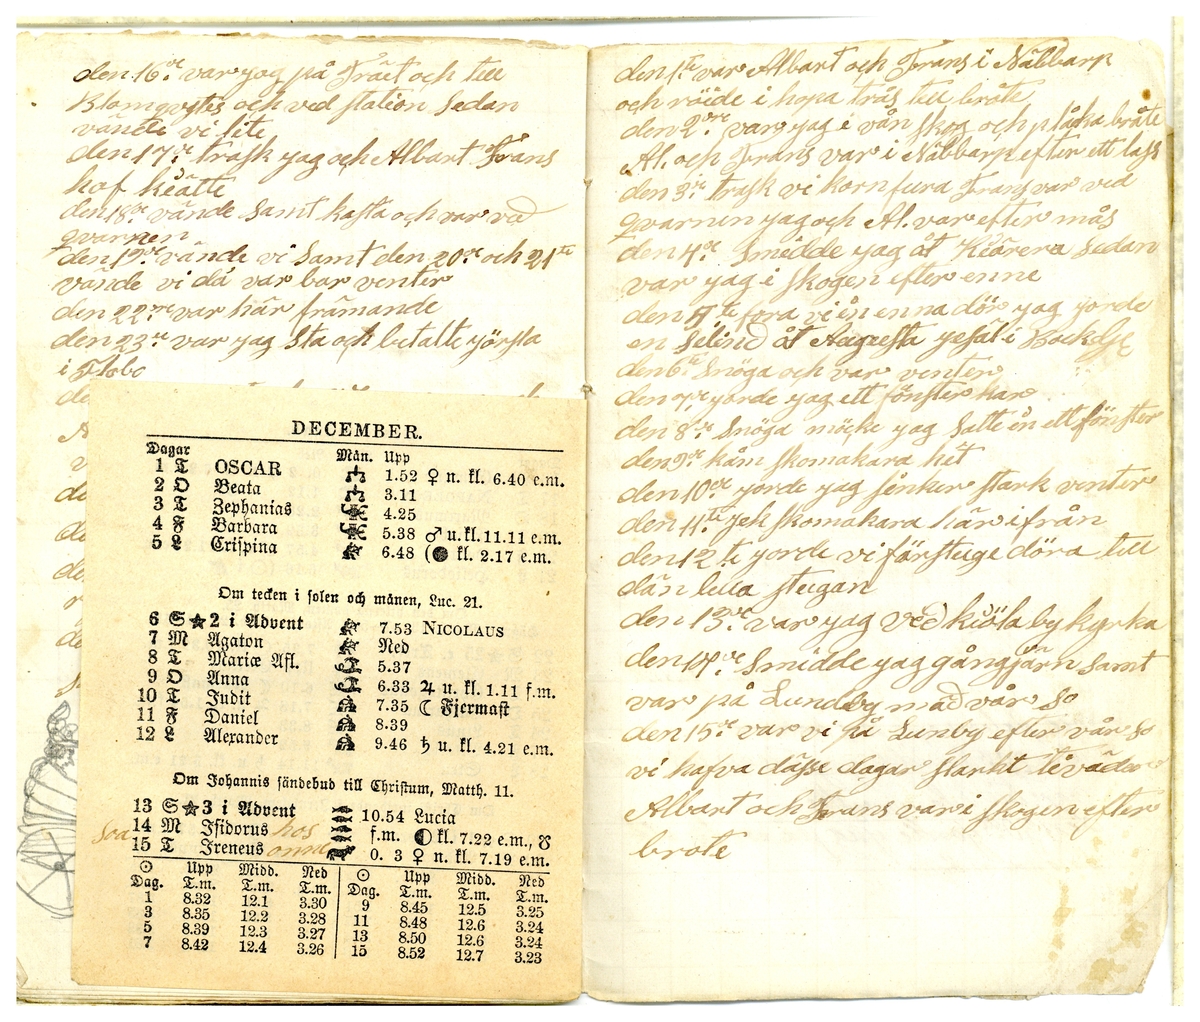 den 16de var yag på Träet och till
Blomqvstes och ved station Sedan
vände vi lite
den 17de trask yag och Albart Frans
haf kiätte
den 18de vände Samt kasta och var ved
qvarnen
den 19de vände vi Samt den 20de och 21ta
vände vi då var bar venter
den 22re var här främande
den 23re var yag Sta och betalte yörsta
i Flobo
de
A
v
de
de
de
r
de
DECEMBER.
Dagar Mån. Upp
1 T OSCAR 1.52 ♀ n. kl. 6.40 e.m.
2 O Beata 3.11
3 T Zephanias 4.25
4 F Barbara 5.38 ♂ u. kl. 11.11 e.m.
5 L Crispina 6.48 (● kl. 2.17 e.m.
Om tecken i solen och månen, Luc. 21.
6 S ★ 2 i Advent 7.53 NICOLAUS
7 M Agaton Ned
8 T Mariæ Afl. 5.37
9 O Anna 6.33 ♃ u. kl. 1.11 f.m.
10 T Judit 7.35 ☾ Fjermast
11 F Daniel 8.39
12 L Alexander 9.46 ♄ u. kl. 4.21 e.m.
Om Johannis sändebud till Christum, Matth. 11.
13 S ★ 3 i Advent 10.54 Lucia
14 M Isidorus hos f.m. ◐ kl. 7.22 e.m., ☋
15 T Ireneus 0. 3 ♀ n. kl. 7.19 e.m.
☉ Upp Midd. Ned ☉ Upp Midd. Ned
Dag. T.m. T.m. T.m. Dag. T.m. T.m. T.m.
1 8.32 12.1 3.30 9 8.45 12.5 3.25
3 8.35 12.2 3.28 11 8.48 12.6 3.24
5 8.39 12.3 3.27 13 8.50 12.6 3.24
7 8.42 12.4 3.26 15 8.52 12.7 3.23
den 1sta var Albart och Frans i Näbbarp
och röide i hopa trås till bråte
den 2dre var yag i vån skog och plåcka bråte
Al. och Frans var i Näbbarp efter ett lass
den 3de trask vi kornfura Frans var ved
qvarnen yag och Al. var efter mås
den 4de Smidde yag åt Kiärera Sedan
var yag i skogen efter enne
den 5te fora vi en enna dör yag yorde
en Selind åt Augusta yesäl i Backelse
den 6te Snöga och var venter
den 7de yorde yag ett fönster kar
den 8de Snöga möcke yag Satte en ett fönster
den 9de kåm skomakara hit
den 10de yorde yag senker stark venter
den 11te yek skomakara här ifrån
den 12te yorde vi färstuge döra till
dän lilla stugan
den 13de var yag ved kiöla by kyrka
den 14de Smidde yag gångjärn Samt
var på Lundby mäd vår So
den 15de var vi på Lunby efter vår so
vi hafva dässe dagar starkt teväder
Albart och Frans var i skogen efter
bråte